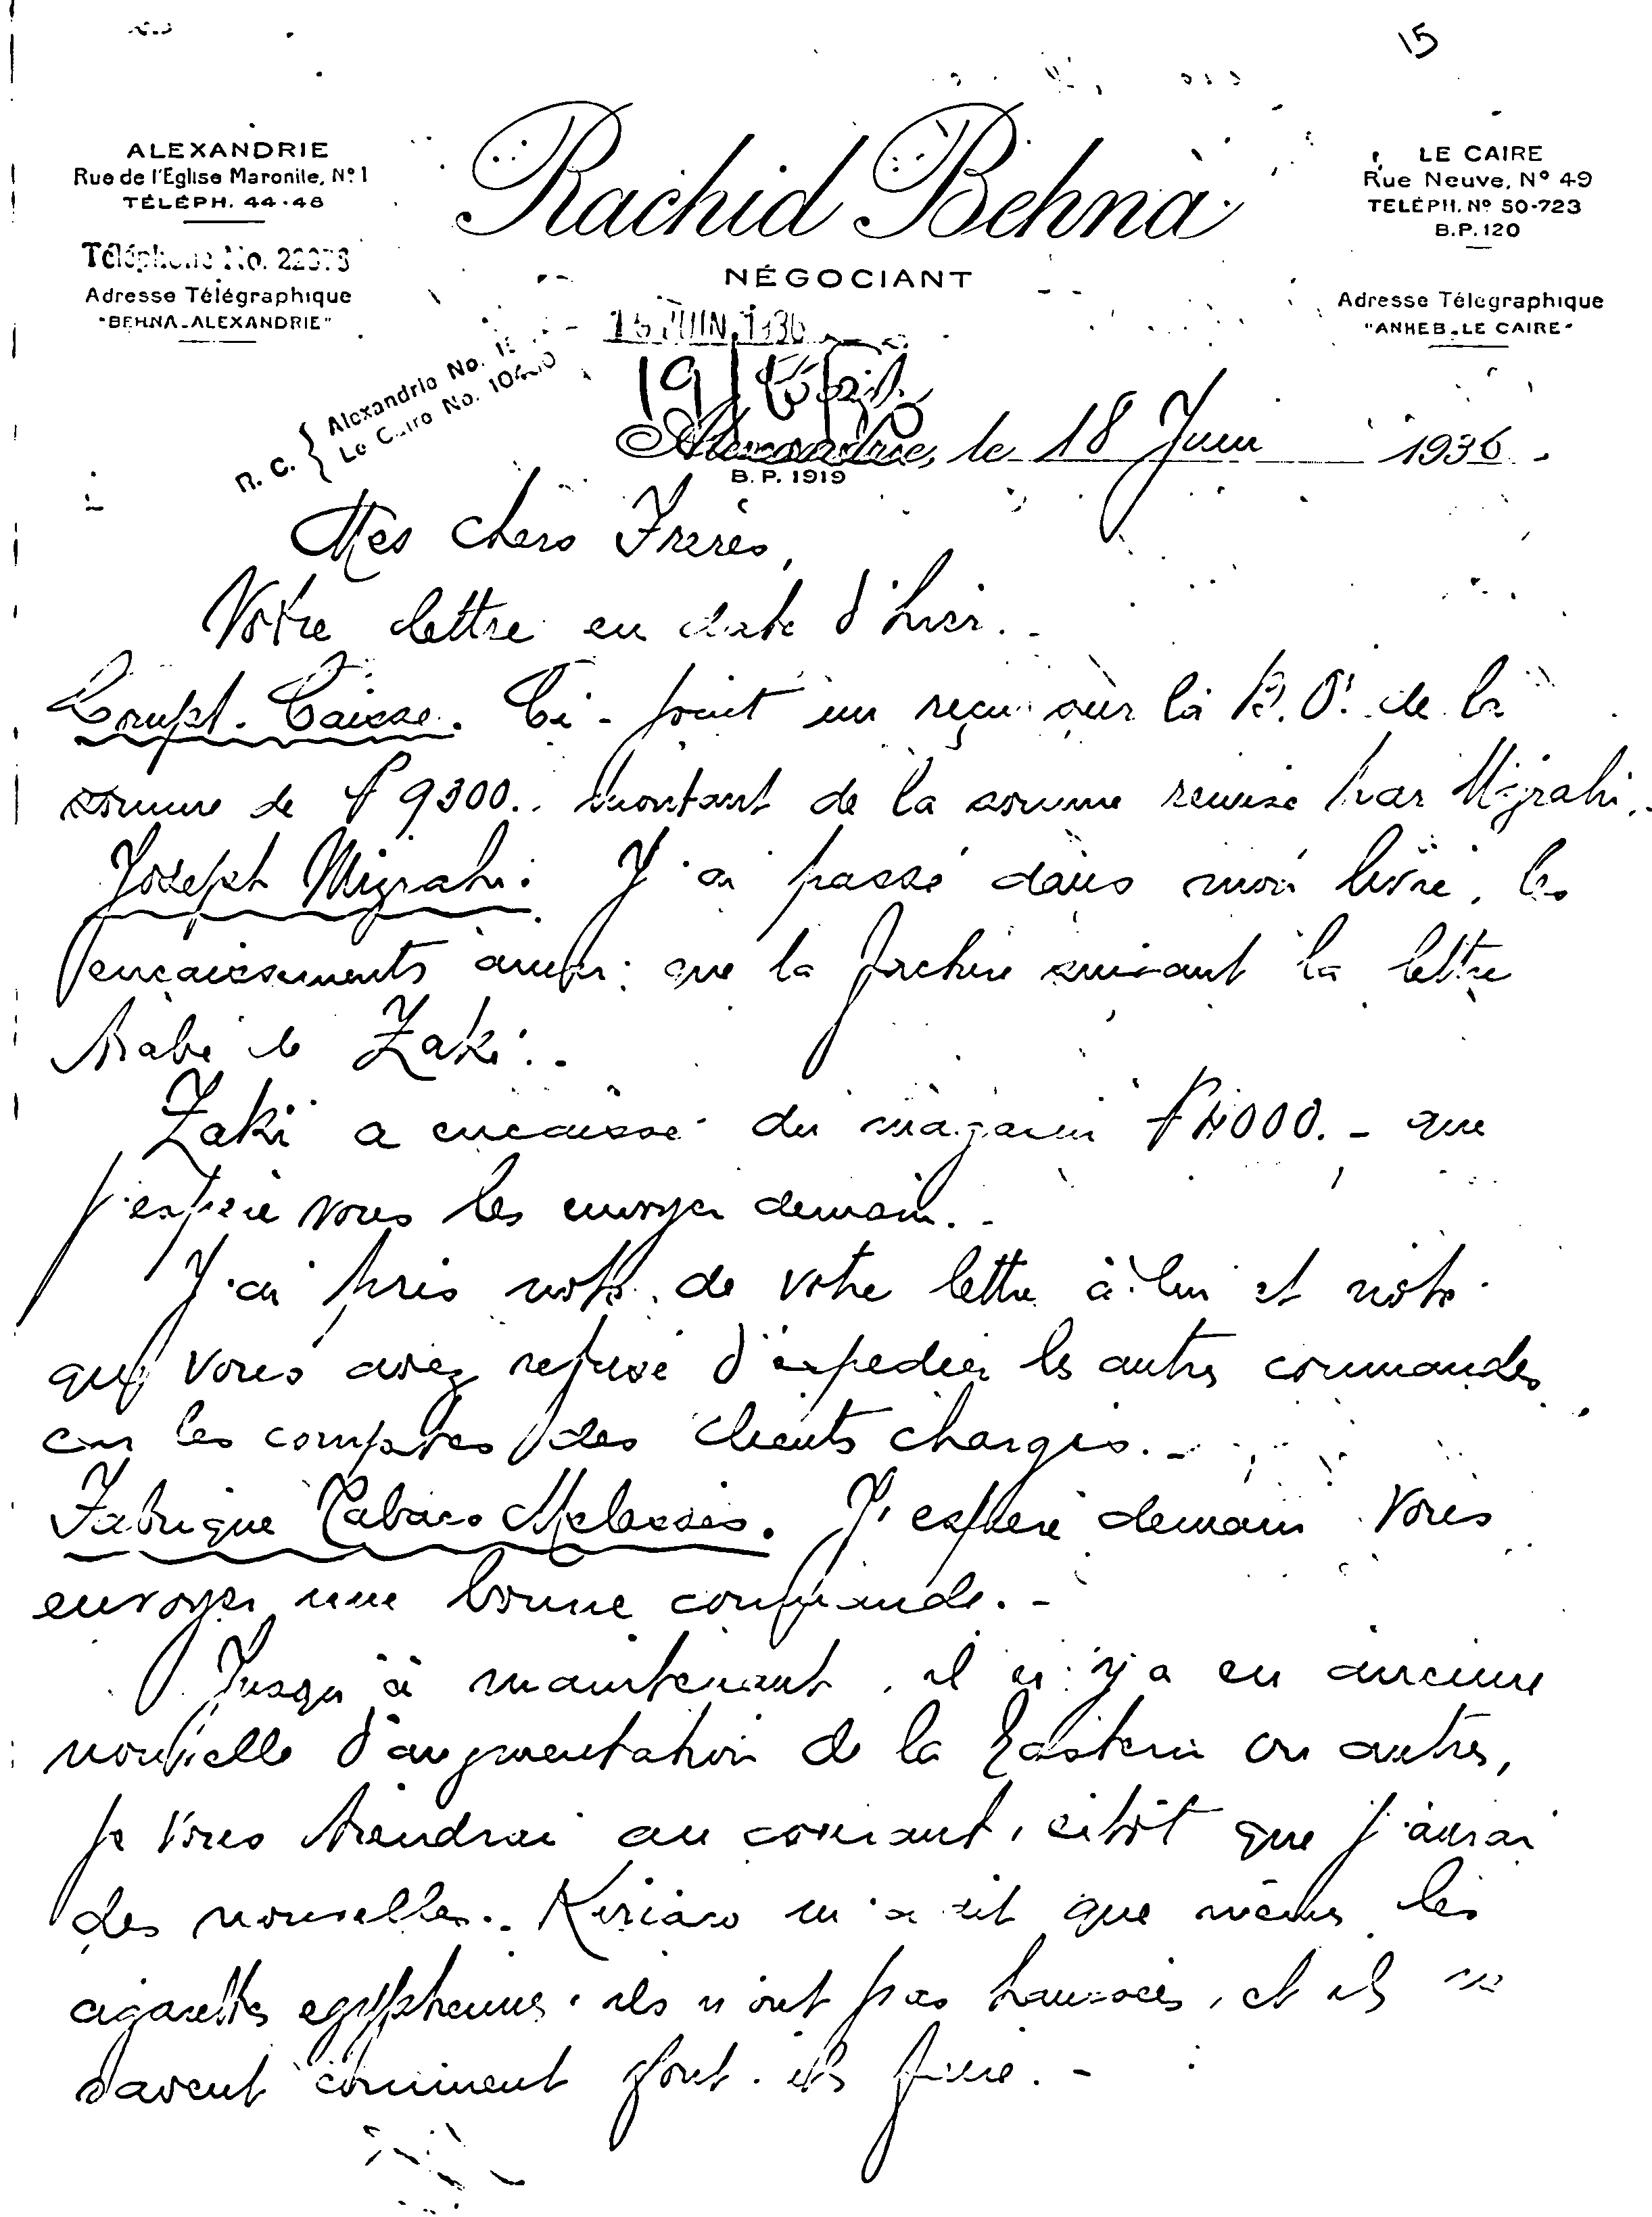 15
ALEXANDRIE
Rue de l'Eglise Maronite, Nº 1
TÉLÉPH. 44-48
Téléphone No.
Adresse Télégraphique
"BEHNA-ALEXANDRIE"
Rachid Behna
NÉGOCIANT
LE CAIRE
Rue Neuve, Nº 49
TELÉPH. Nº 50-723
B.P. 120
Adresse Télégraphique
"ANHEB-LE CAIRE"
JUIN 1936
R. C. { Alexandrie No.
Le Caire No.
19
Alexandrie, le 18 Juin 1936.
B. P. 1919
Mes chers Frères,
Votre lettre en date d'hier.-
Compt. Caisse. Ci-joint un reçu sur la B.O. de la
somme de P 9300.- montant de la somme remise par Mizrahi.-
Joseph Mizrahi. J'ai passé dans mon livre, les
encaissements ainsi que la facture suivant la lettre
Arabe de Zaki.-
Zaki a encaissé du magasin P 4000.- que
j'espère vous les envoyer demain.-
J'ai pris note de votre lettre à lui et note
que vous avez refusé d'expedier les autres commandes
car les comptes des clients chargés.-
Fabrique Tabacs Melossis. J'espere demain vous
envoyer une bonne commande.-
Jusqu'à maintenant, il n'y a eu aucune
nouvelle d'augmentation de la Eastern ou autres,
je vous tiendrai au courant, sitôt que j'aurai
des nouvelles.- Kiriaco m'a dit que même les
cigarettes egyptiennes, ils n'ont pas haussées, et ils ne
savent comment font-ils faire.-